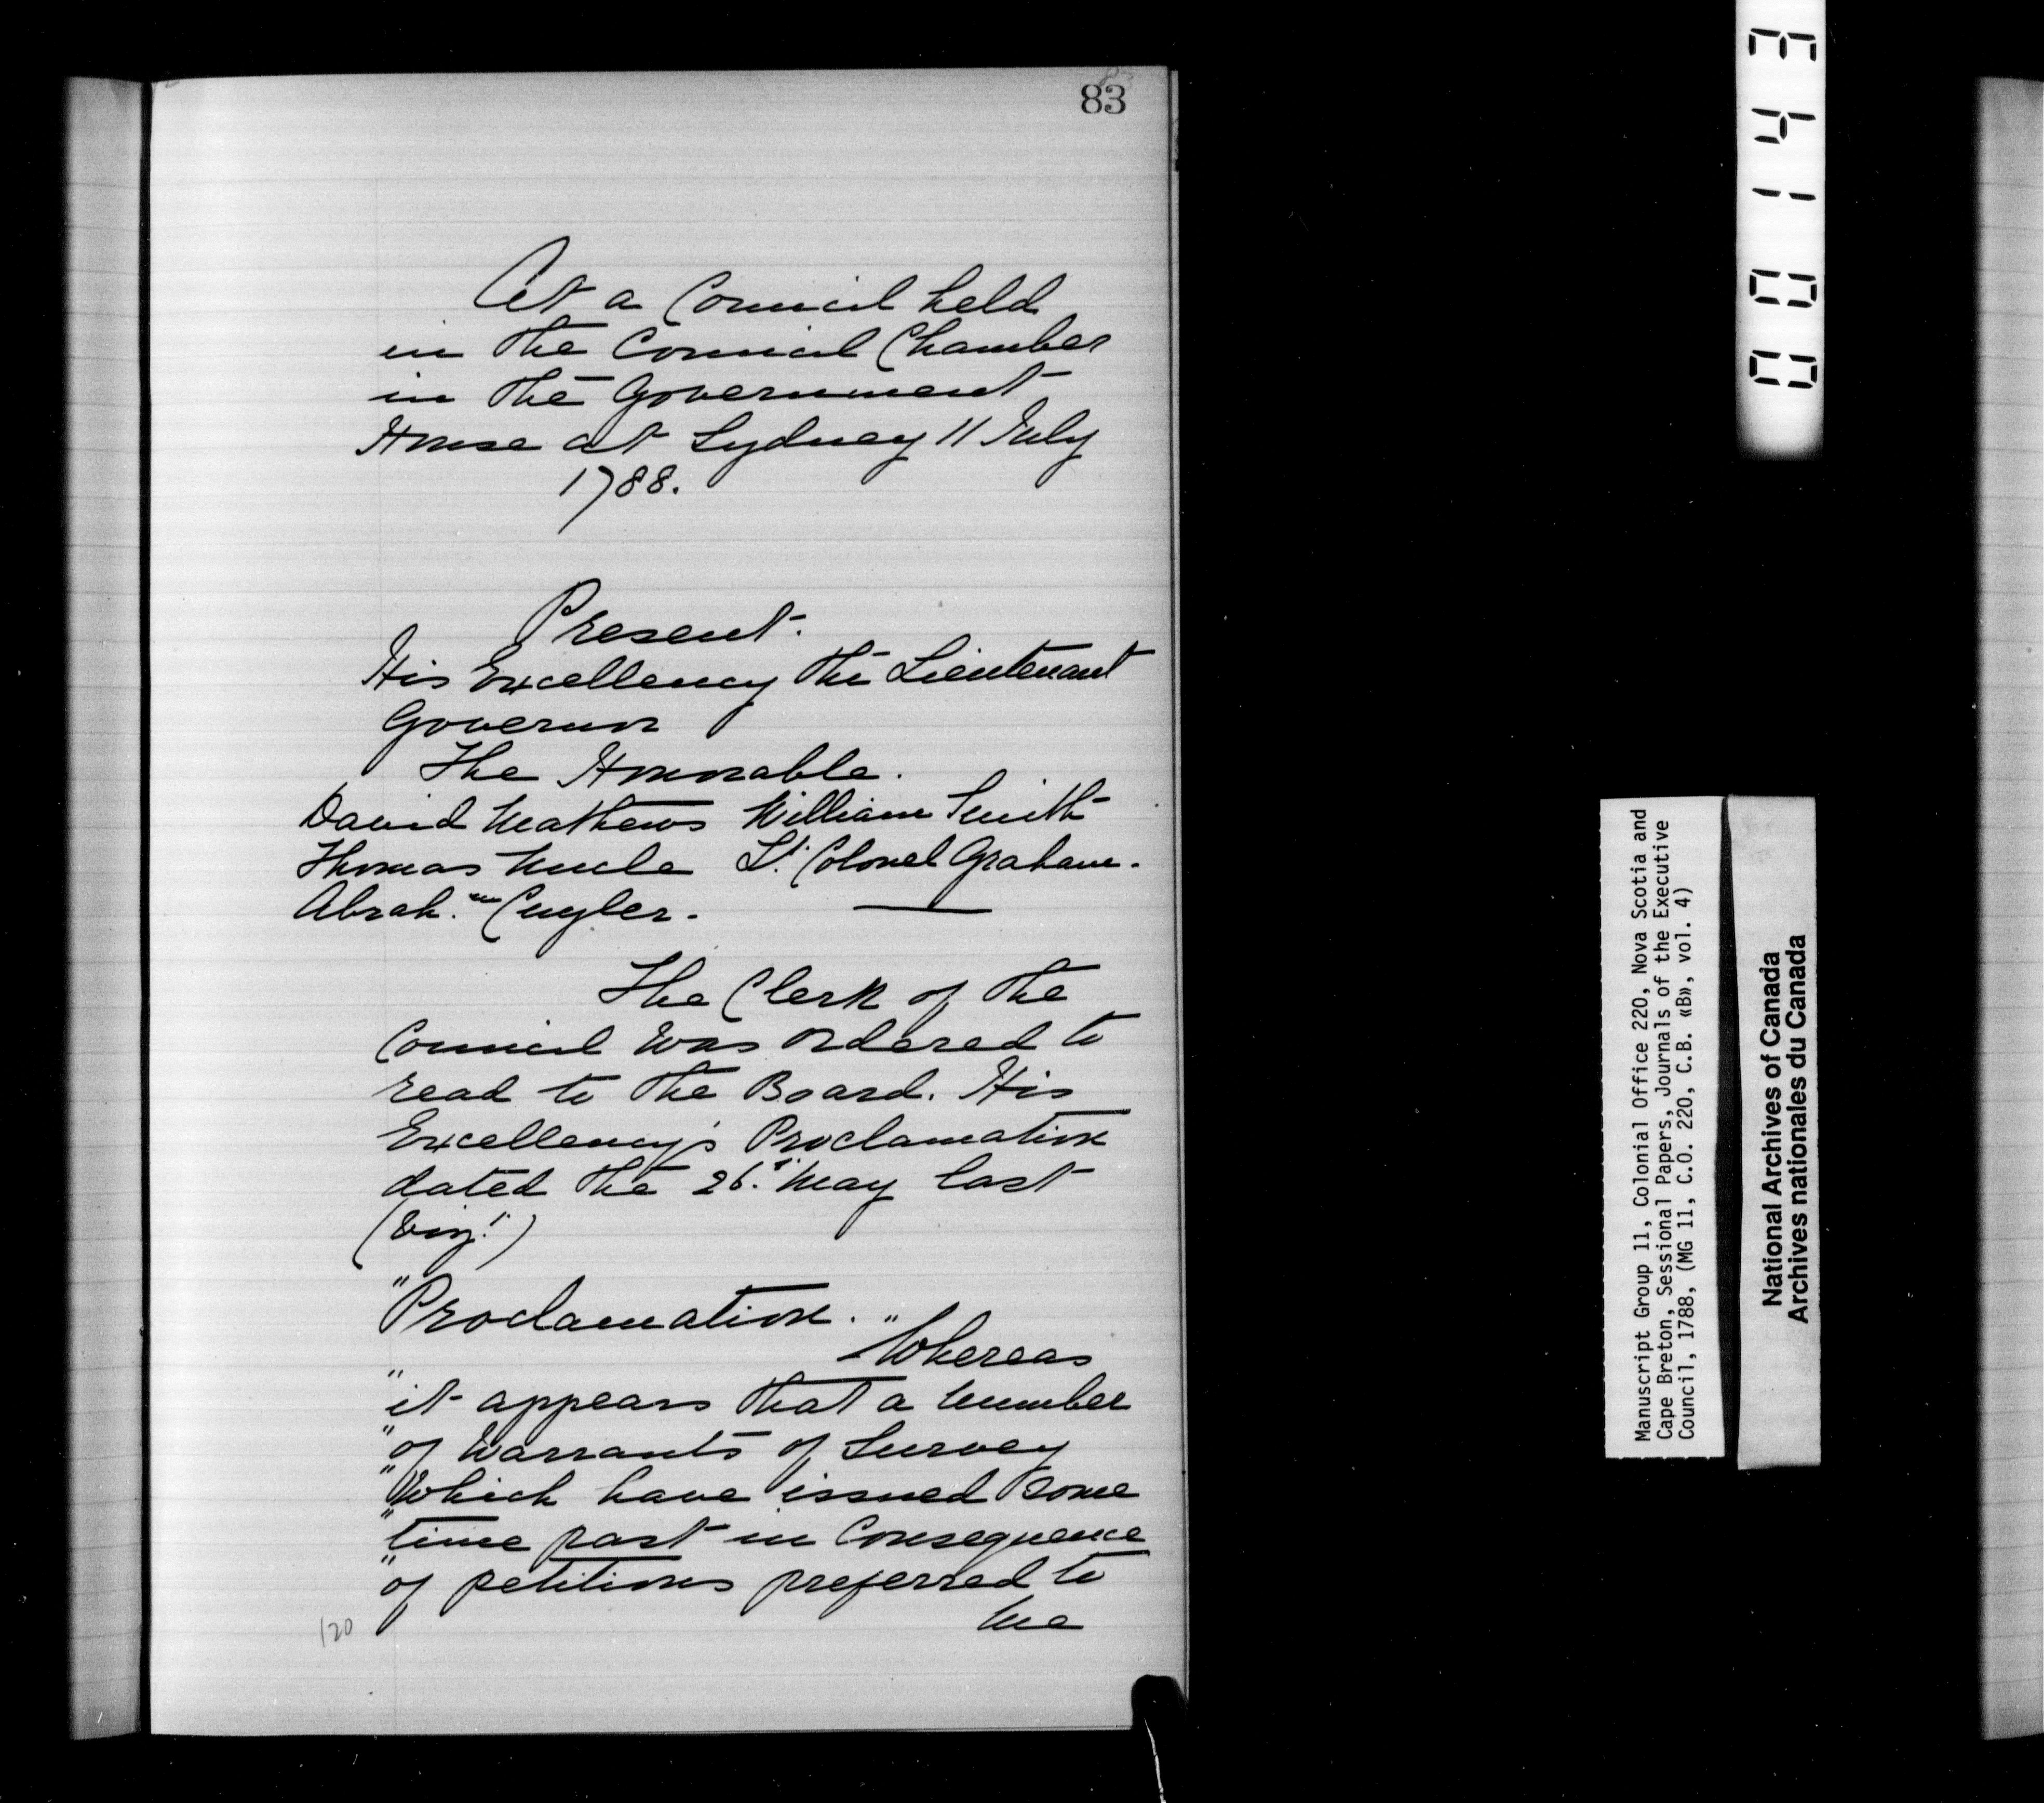 83
At a Council held
in the Council Chamber
in the Government
House at Sydney 11 July
1788.
Present.
His Excellency the Lieutenant
Governor
The Honorable.
David Mathews William Smith
Thomas Uncle Lt. Colonel Graham.
Abrah.m Cuyler.
The Clerk of the
Council was ordered to
read to the Board. His
Excellency's Proclamation
dated the 26. May last
(Vizt.)
"Proclamation. "Whereas
"it appears that a number
"of Warrants of Survey
"Which have issued some
"time past in Consequence
"of petitions preferred to
me
120
0 0 1 4 3
Manuscript Group 11, Colonial Office 220, Nova Scotia and
Cape Breton, Sessional Papers, Journals of the Executive
Council, 1788, (MG 11, C.O. 220, C.B. «B», vol. 4)
National Archives of Canada
Archives nationales du Canada